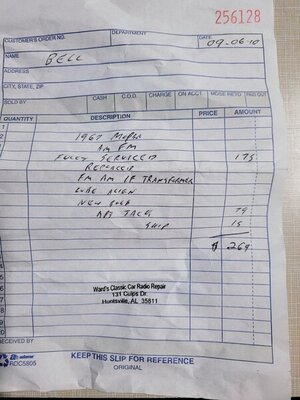 256128
CUSTOMER'S ORDER NO. DEPARTMENT DATE 09-06-10
NAME BELL
ADDRESS
CITY, STATE, ZIP
SOLD BY CASH C.O.D. CHARGE ON ACCT. MDSE RETD PAID OUT
QUANTITY DESCRIPTION PRICE AMOUNT
1967
AM FM
FULLY SERVICED 175
REPLACED
FM AM IF TRANSFORMER
LUBE ALIGN
NEW
79
SHIP 15
$ 269
Ward's Classic Car Radio Repair
131 Culps Dr.
Huntsville, AL 35811
RECEIVED BY
adams
RDC5805
KEEP THIS SLIP FOR REFERENCE
ORIGINAL